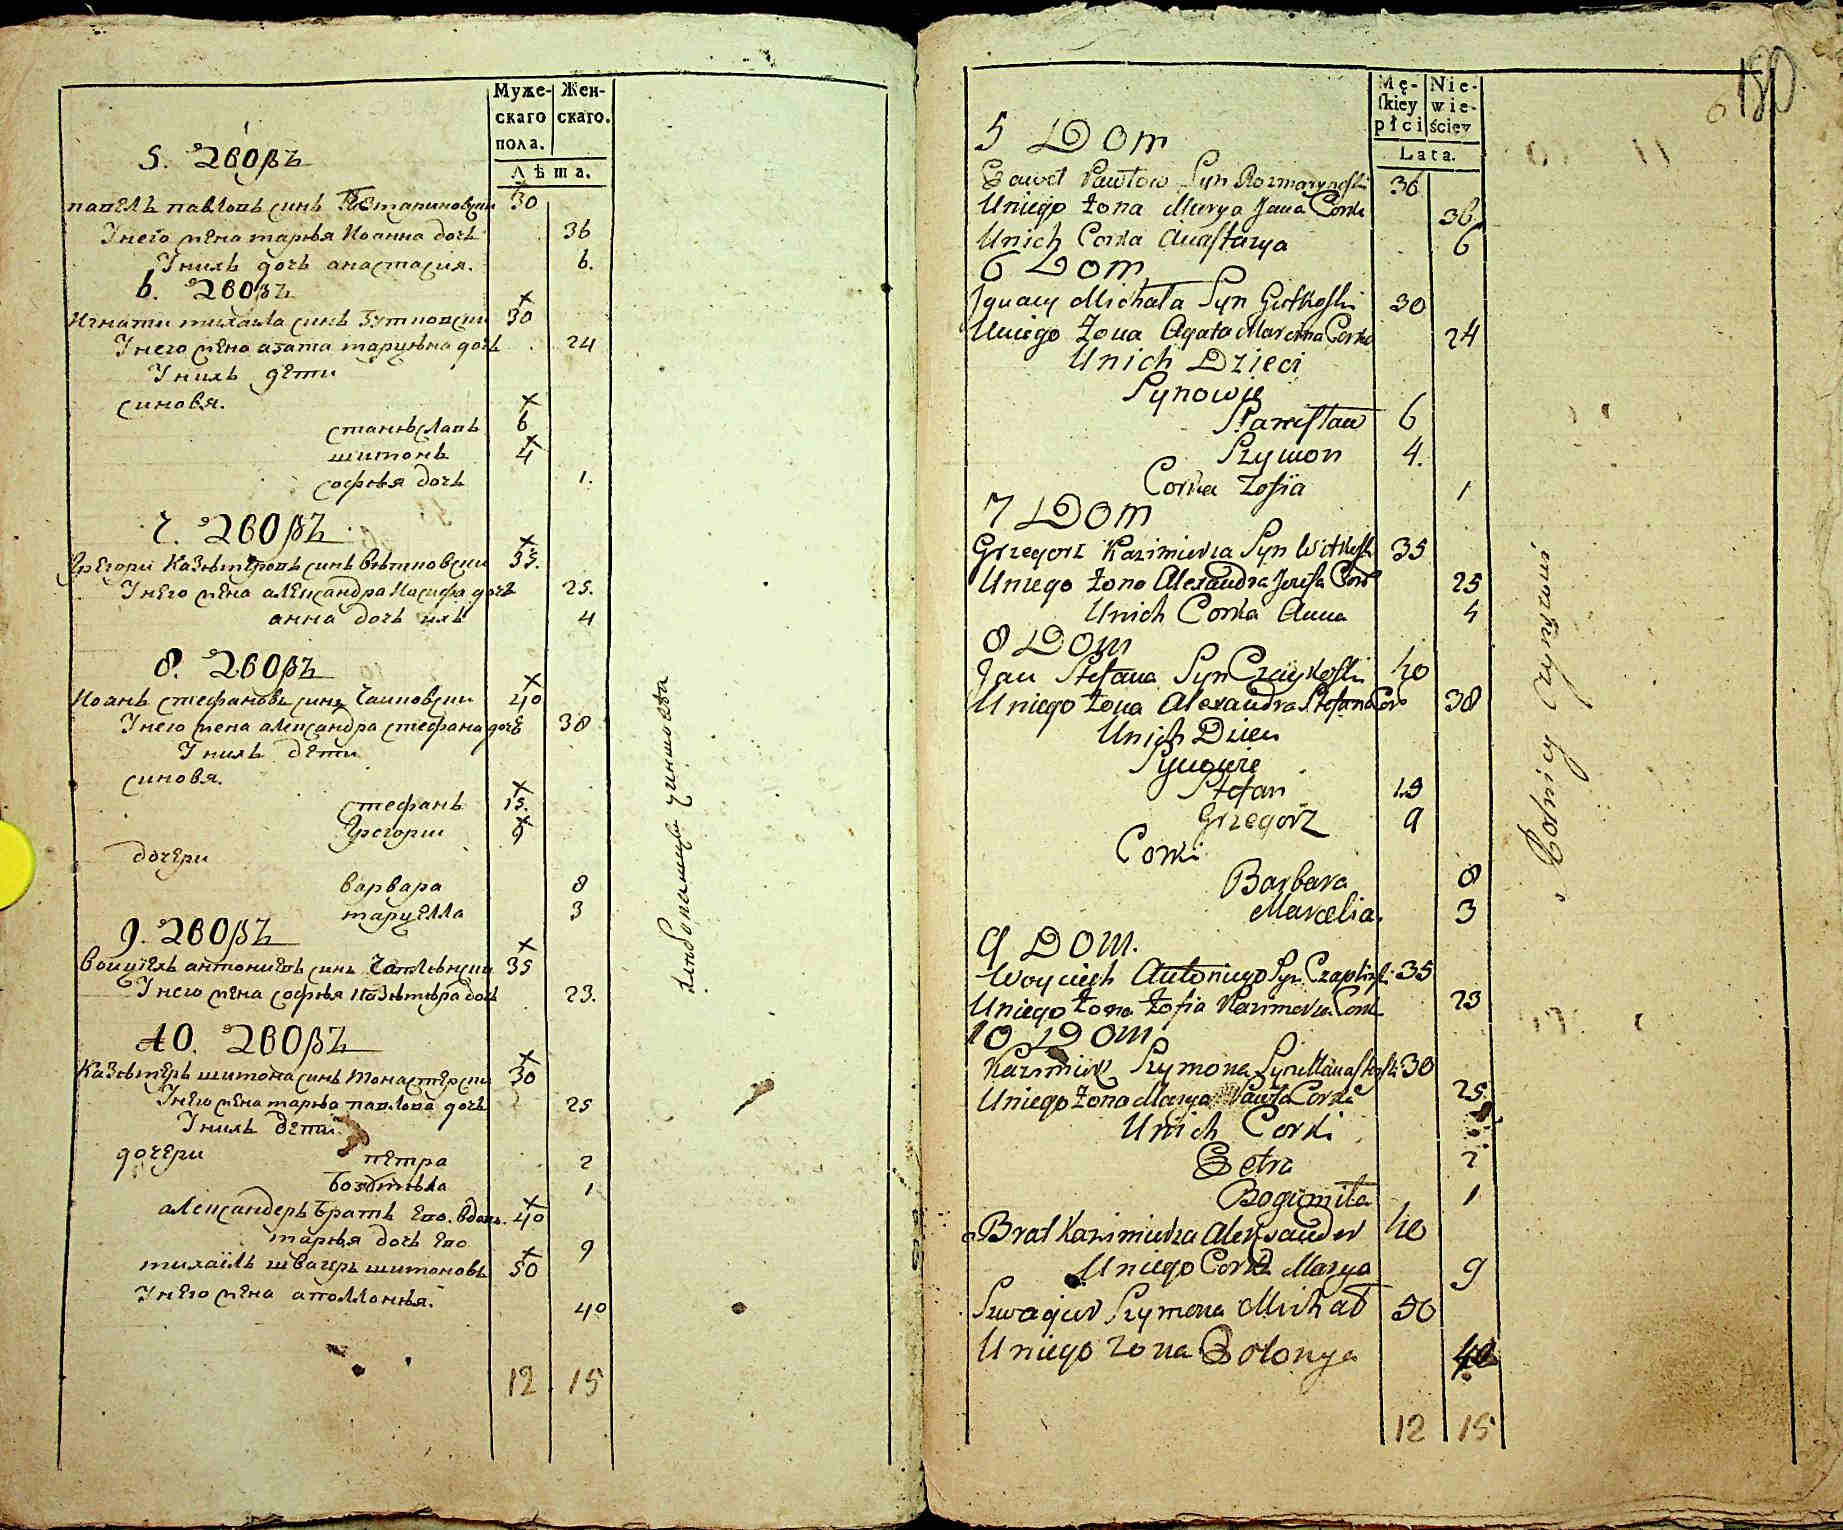 Муже-
скаго
пола.
Жен-
скаго.
Лѣта.
5. Дворъ
павелъ павловъ синъ 30
У него жена марья Иоанна дочь 36
У нихъ дочь анастасия. 6.
6. Дворъ
Игнати михаила синъ Гутковски 30
У него жена агата марцѣна дочь 24
У нихъ дети
синовя.
станѣславъ 6
шимонъ 4
софья дочь 1.
7. Дворъ
Грегори Казѣмѣровъ синъ вѣтковски 35.
У него жена александра Иосифа дочь 25.
анна дочь ихъ 4
8. Дворъ
Иоанъ стефановъ синъ Чаиковски 40
У него жена александра стефана дочь 38
У нихъ дети
синовя.
стефанъ 15.
Грегории 9
дочери
варвара 8
марцелла 3
9. Дворъ
воицехъ антониевъ синъ Чаплѣнски 35
У него жена софья Казѣмѣра дочь 23.
10. Дворъ
Казѣмеръ шимона синъ монастерски 30
У него жена марья павлова дочь 25
У нихъ дети
дочери петра 2
Богумѣла 1
александеръ братъ его. вдов. 40
марья дочь его 9
михаилъ швагеръ шимоновъ 50
У него жена аполлонья. 40
12 15
хлѣборолници чиншовы
180
Mę-
skiey
płci
Nie-
wie-
ściey
Lata.
5 Dom
Pawel Pawłow Syn Rozmarynoski 36
Uniego żona Marya Jana Corka 36
Unich Corka Anastazya 6
6 Dom
Ignacy Michała Syn Gutkoski 30
Uniego żona Agata Marcina Corka 24
Unich Dzieci
Synowie
Stanisław 6
Szymon 4.
Corka Zofia 1
7 Dom
Grzegorz Kazimierza Syn Witkoski 35
Uniego żona Alexandra Jozefa Cork 25
Unich Corka Anna 4
8 Dom
Jan Stefana Syn Czaykoski 40
Uniego żona Alexandra Stefana Cor 38
Unich Dzieci
Synowie
Stefan 15
Grzegorz 9
Corki
Barbara 8
Marcelia. 3
9 Dom.
Woyciech Antoniego Syn Czaplinski 35
Uniego żona Zofia Kazimierza Cork 23
10 Dom
Kazimierz Szymona Syn Monasterski 30
Uniego żona Marya Pawła Corka 25.
Unich Corki
Petra 2
Bogumiła 1
Brat Kazimierza Alexander 40
Uniego Corka Marya 9
Szwagier Szymona Michał 50
Uniego zona Polonya 40
12 15
Rolnicy czynszowi